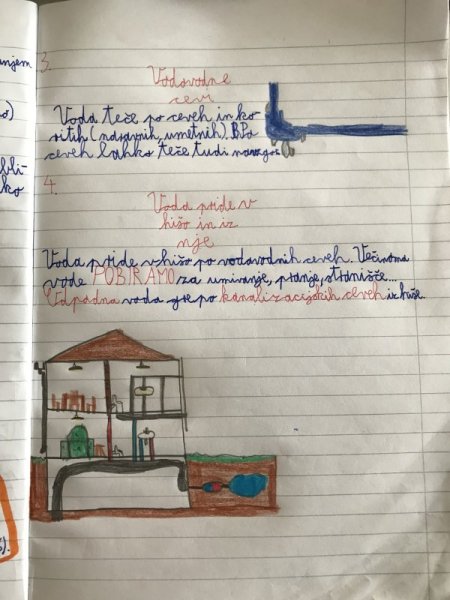 njem
3.
Vodovodne
cevi
Voda teče po ceveh in ko
ritih (naravnih, umetnih). Po
ceveh lahko teče tudi navzgor.
bli
ko
4.
Voda pride v
hišo in iz
nje
Voda pride v hišo po vodovodnih ceveh. Večinoma
vode PORABIMO za umivanje, pranje, stranišče...
Odpadna voda gre po kanalizacijskih ceveh iz hiše.